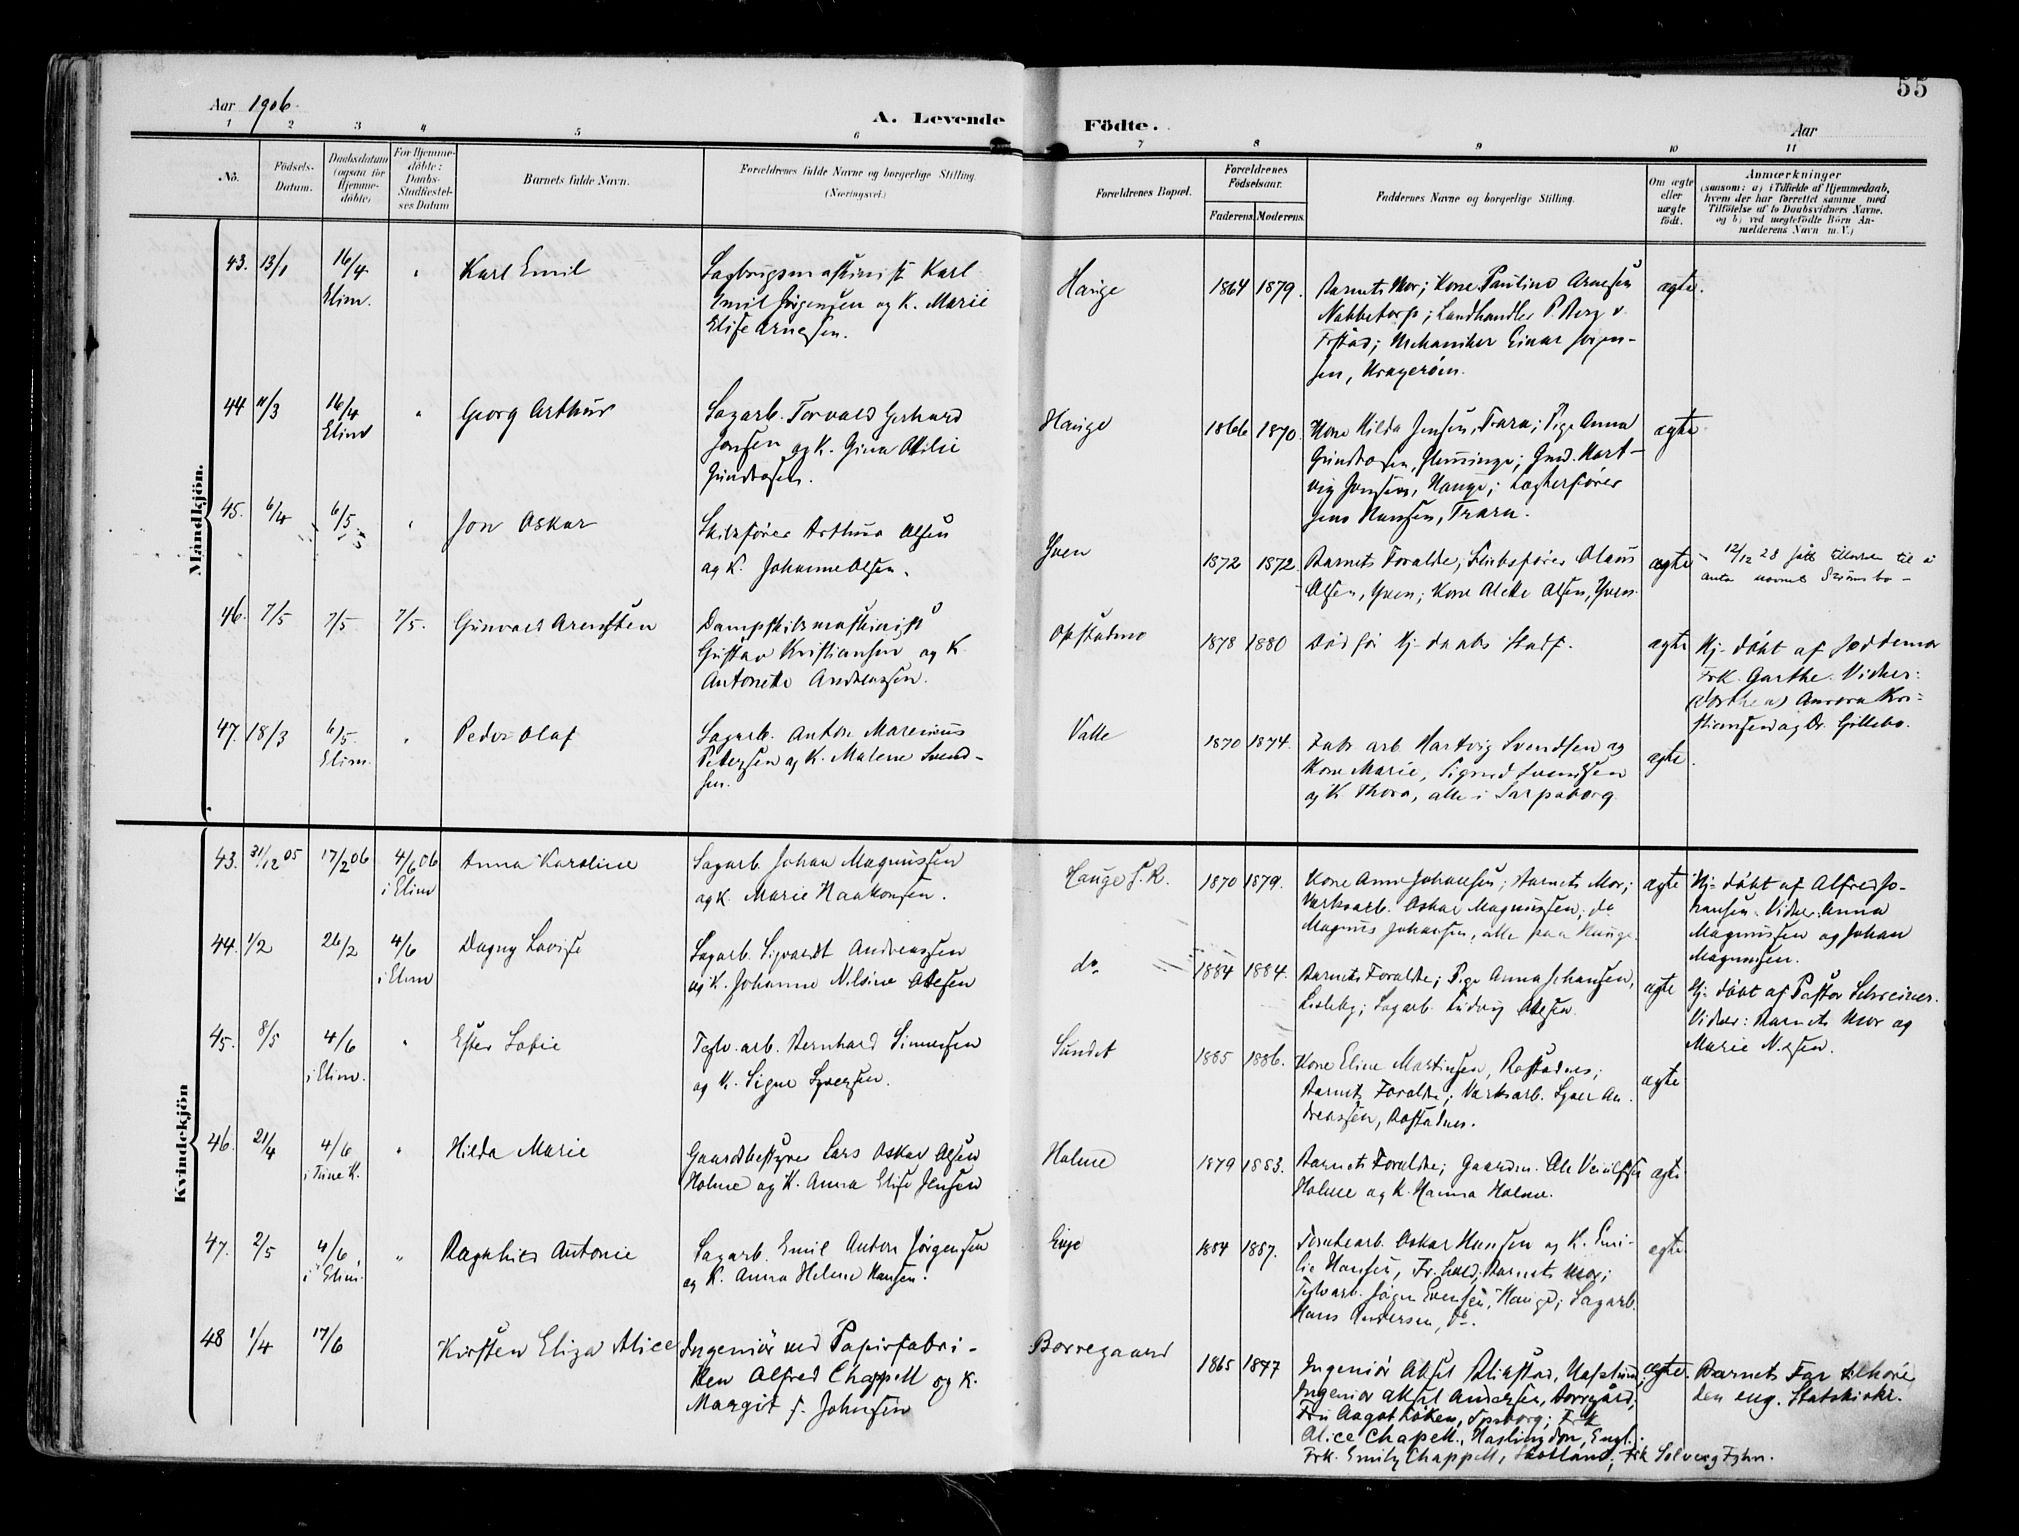 55
Aar 1906.
A. Levende Födte.
Aar
1 2 3 4 5 6 7 8 9 10 11
No.
Födsels-Datum.
Daabsdatum (ogsaa for Hjemme-döbte)
For Hjemme-döbte: Daabs-Stadfæstel-ses Datum
Barnets fulde Navn.
Forældrenes fulde Navne og borgerlige Stilling.
(Næringsvei.)
Forældrenes Bopæl.
Forældrenes Födselsaar.
Faderens. Moderens.
Faddernes Navne og borgerlige Stilling.
Om ægte eller uægte födt.
Anmærkninger
(saasom: a) i Tilfælde af Hjemmedaab,
hvem der har forrettet samme med
Tilföielse af to Daabsvidners Navne.
og b) ved uægtefödte Börn An-
melderens Navn m. V.)
Mandkjön.
43. 13/1 16/4 Elim. " Karl Emil
Sagbrugsmaskinist Karl
Emil Jørgensen og K. Marie
Elise Arnesen.
Hauge 1864 1879.
Barnets Mor; Kone Pauline Arnesen
Nabbetorp; Landhandler P. Berg v.
Frstad; Mekaniker Einar Jørgen-
sen, Kragerøen.
ægte.
44 11/3 16/4 Elim " Georg Arthur
Sagarb. Torvald Gerhard
Jensen og K. Gina Otilie
Gundersen.
Hauge 1866 1870.
Kone Hilda Jensen, Trara; Pige Anna
Gundersen, Glemminge; Gmd. Hart-
vig Jensen, Hauge; Lægterfører
Jens Hansen, Trara.
ægte
45. 6/4 6/5 " Jon Oskar
Skibsfører Arthur Olsen
og K. Johanne Olsen.
Yven 1872 1872
Barnets Foraldre, Skibsfører Olaus
Olsen, Yven; Kone Alette Olsen, Yven.
ægte
12/12 28 fått tillatelse til å
anta navnet
46. 7/5 7/5 7/5. Gunvald Arentsen
Dampskibsmaskinist
Gustav Kristiansen og K.
Antonette Andreassen.
Opstadmo 1878 1880
Død før Hj. daabs Stadf.
ægte
Hj. døbt af Jordemor
Frk. Garthe. Vidner:
Aurora Kri-
stiansen og Dr. Gillebo.
47. 18/3 6/5. Elim. " Peder Olaf
Sagarb. Anton Marenius
Petersen og K. Malene Svend-
sen.
Valle 1870 1874.
Fabr arb Hartvig Svendsen og
Kone Marie, Sigurd Svendsen
og K Thora, alle i Sarpsborg.
ægte.
Kvindekjön
43. 31/12 05 17/2 06 4/6 06 i Elim Anna Karoline
Sagarb. Johan Magnussen
og K. Marie Haakonsen.
Hauge S. R. 1870 1879.
Kone Anne Johansen; Barnets Mor;
Værksarb. Oskar Magnussen; do
Magnus Johansen, alle paa Hauge.
ægte
Hj. døbt af Alfred Jo-
hansen. Vidner: Anna
Magnussen og Johan
Magnussen.
44. 1/2 26/2 4/6 i Elim Dagny Lovise
Sagarb. Sigvardt Andreassen
og K. Johanne Nilsine Olesen
do. 1884 1884.
Barnets Foraldre; Pige Anna Johansen,
Lisleby; Sagarb. Ludvig Olesen.
ægte
Hj. døbt af Pastor Schreiner.
Vidner: Barnets Mor og
Marie Nilsen.
45. 8/5 4/6 i Elim. " Ester Sofie
Teglv. arb. Bernhard Simensen
og K. Signe Syversen.
Sundet 1885 1886.
Kone Eline Martinsen, Rostadnes;
Barnets Foraldre; Værksarb. Syver An
dreassen, Rostadnes.
ægte
46. 21/4 4/6 i Tune K. " Hilda Marie
Gaardbestyrer Lars Oskar Olsen
Holme og K. Anna Elise Jensen
Holme 1879 1883.
Barnets Foraldre; Gaardm. Ole
Holme og K. Hanna Holme.
ægte
47. 2/5 4/6 i Elim. " Ragnhild Antonie
Sagarb. Emil Anton Jørgensen
og K. Anna Helene Hansen.
Enge 1884 1887.
Tomtearb. Oskar Hansen og K. Emi-
lie Hansen, Fr.hald; Barnets Mor;
Teglv arb. Jørgen Evensen, Hauge; Sagarb.
Hans Andersen, do.
ægte
48 1/4 17/6 Kirsten Eliza Alice
Ingeniør ved Papirfabri-
ken Alfred Chappell og K.
Margit f. Johnsen
Borregaard 1865 1877
Ingeniør Aksel Blikstad, Hafslund;
Ingeniør Aksel Andersen, Borregård;
Fru Aagot Løken, Spsborg; Frk
Alice Chapell, Haslingdon, Engl.;
Frk. Emily Chappell, Skotland; Frk Solveig Fjhn.
ægte.
Barnets Far tilhører
den eng. Statskirke.